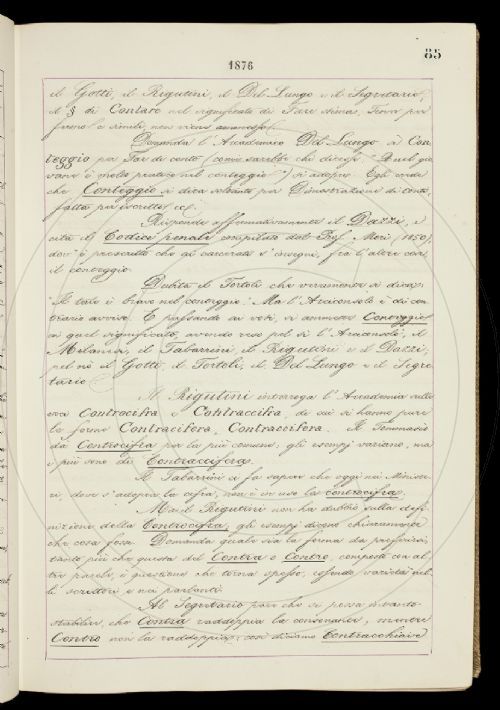 85
1876
il Gotti, il Rigutini, il Del Lungo e il Segretario,
il § di Contare nel significato di Fare stima, Tener per
fermo e simili, non viene ammesso.
Domanda l'Accademico Del Lungo se Con
teggio per Far di conto (come sarebbe chi dicesse "Quel gio
vane è molto pratico nel conteggio") si adopri. Egli crede
che Conteggio si dica soltanto per Dimostrazione di conto
fatta per iscritto ec.
Risponde affermativamente il Dazzi, e
cita il Codice penale compilato dal Prof. Mori (1850),
dov'è prescritto che ai carcerati s'insegni, fra l'altre cose,
il conteggio.
Dubita il Tortoli che veramente si dica:
"Il tale è bravo nel conteggio." Ma l'Arciconsolo è di con
trario avviso. E passando ai voti, si ammette Conteggio
in quel significato, avendo reso pel sì l'Arciconsolo, il
Milanesi, il Tabarrini, il Rigutini e il Dazzi;
pel no il Gotti, il Tortoli, il Del Lungo e il Segre
tario.
Il Rigutini interroga l'Accademia sulla
voce Controcifra e Contraccifra, di cui si hanno pure
le forme Contracifera, Contraccifera. Il Tommaseo
dà Controcifra per la più comune; gli esempj variano, ma
i più sono di Contraccifera.
Il Tabarrini fa sapere che oggi nei Ministe
ri, dove s'adopera la cifra, non è in uso la controcifra.
Ma il Rigutini non ha dubbio sulla defi
nizione della Controcifra; gli esempj dicono chiaramente
che cosa fosse. Domanda quale sia la forma da preferirsi,
tanto più che questa del Contra e Contro, composti con al
tre parole, è questione che torna spesso, essendo varietà ne
gli scrittori e nei parlanti.
Al Segretario pare che si possa intanto
stabilire, che Contra raddoppia la consonante, mentre
Contro non la raddoppia; così diciamo Contracchiave